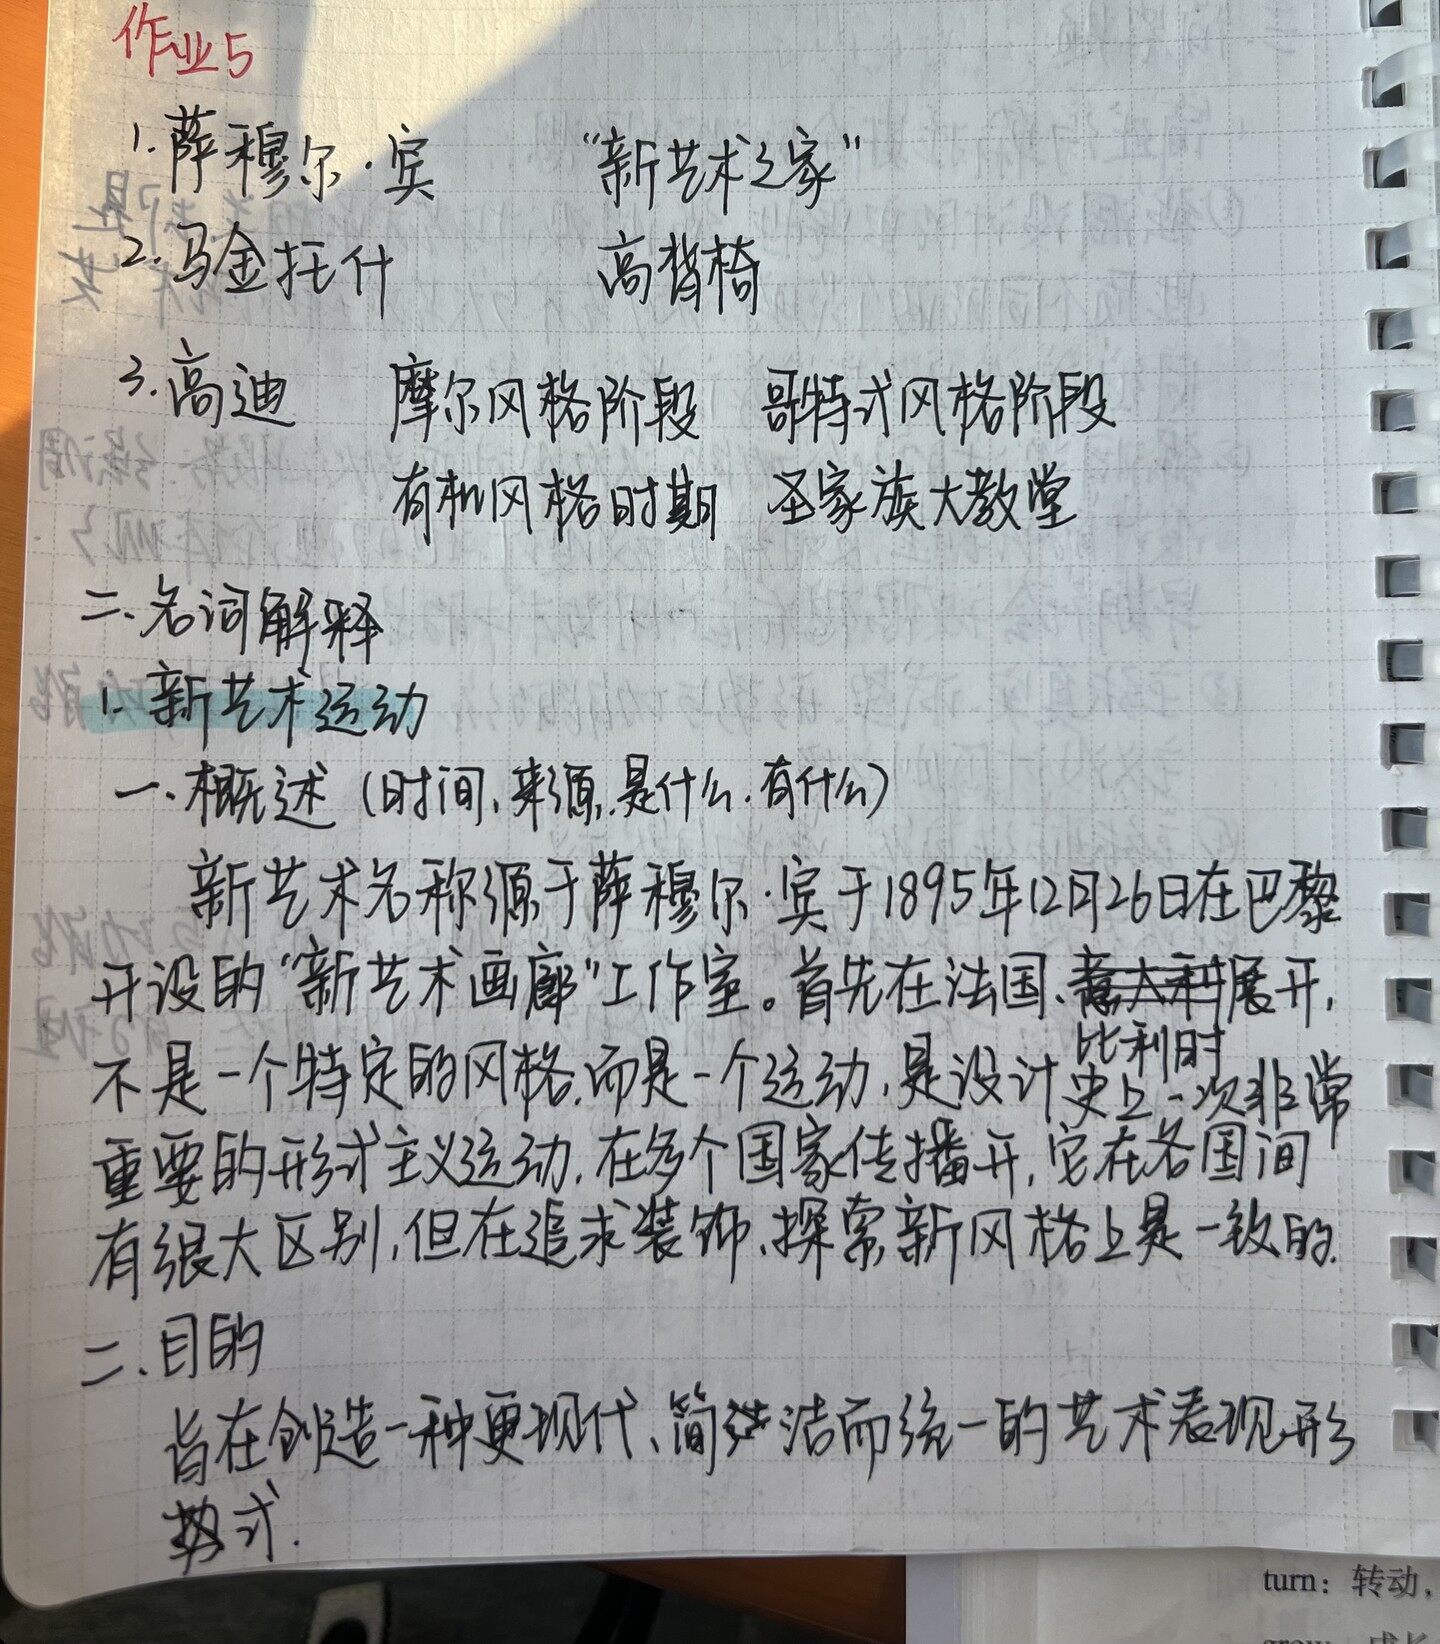 作业5
1.萨穆尔·宾 “新艺术之家”
2.马金托什 高背椅
3.高迪 摩尔风格阶段 哥特式风格阶段
有机风格时期 圣家族大教堂
二.名词解释
1.新艺术运动
一.概述(时间、来源、是什么、有什么)
新艺术名称源于萨穆尔·宾于1895年12月26日在巴黎
开设的“新艺术画廊”工作室。首先在法国、意大利展开,
比利时
不是一个特定的风格,而是一个运动,是设计史上一次非常
重要的形式主义运动,在多个国家传播开,它在各国间
有很大区别,但在追求装饰、探索新风格上是一致的.
二.目的
旨在创造一种更现代、简洁而统一的艺术表现形
式.
turn：转动,